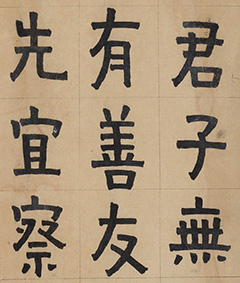 君子無
有善友
先宜察